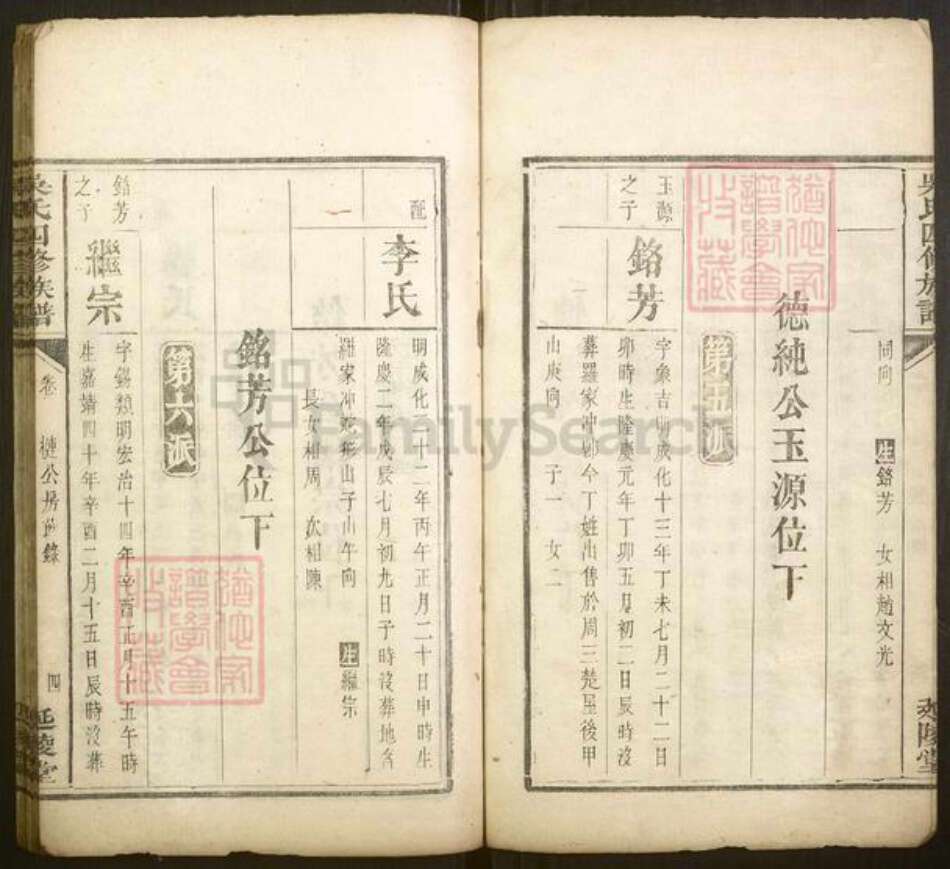 吳氏四修族譜
延陵堂
同向 生銘芳 女相趙文光
德純公玉源位下
第五派
玉源之子
銘芳
字象吉明成化十三年丁未七月二十二日
卯時生隆慶元年丁卯五月初二日辰時沒
葬羅家冲卽今丁姓出售於周三楚屋後甲
山庚向 子一 女二
配
李氏
明成化二十二年丙午正月二十日申時生
隆慶二年戊辰七月初九日子時沒葬地名
羅家冲蛇形山子山午向 生繼宗
長女相周 次相陳
銘芳公位下
第六派
銘芳之子
繼宗
字錫類明宏治十四年辛酉正月十五午時
生嘉靖四十年辛酉二月十五日辰時沒葬
吳氏四修族譜
卷 槤公房齒錄
四
延陵堂
猶他家譜學會收藏
猶他家譜學會收藏
FamilySearch